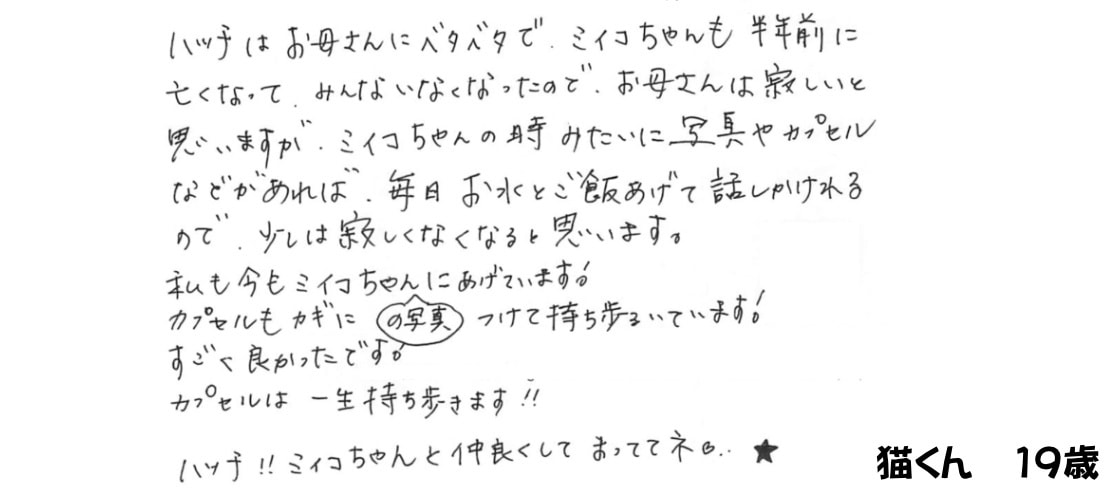 ハッチはお母さんにベタベタで、ミイコちゃんも半年前に
亡くなって、みんないなくなったので、お母さんは寂しいと
思いますが、ミイコちゃんの時みたいに写真やカプセル
などがあれば、毎日お水とご飯あげて話しかけれる
ので、少しは寂しくなくなると思います。
私も今もミイコちゃんにあげています!
の写真
カプセルもカギにつけて持ち歩いています!
すごく良かったです!
カプセルは一生持ち歩きます!!
ハッチ!!ミイコちゃんと仲良くしてまっててネ ★
猫くん 19歳